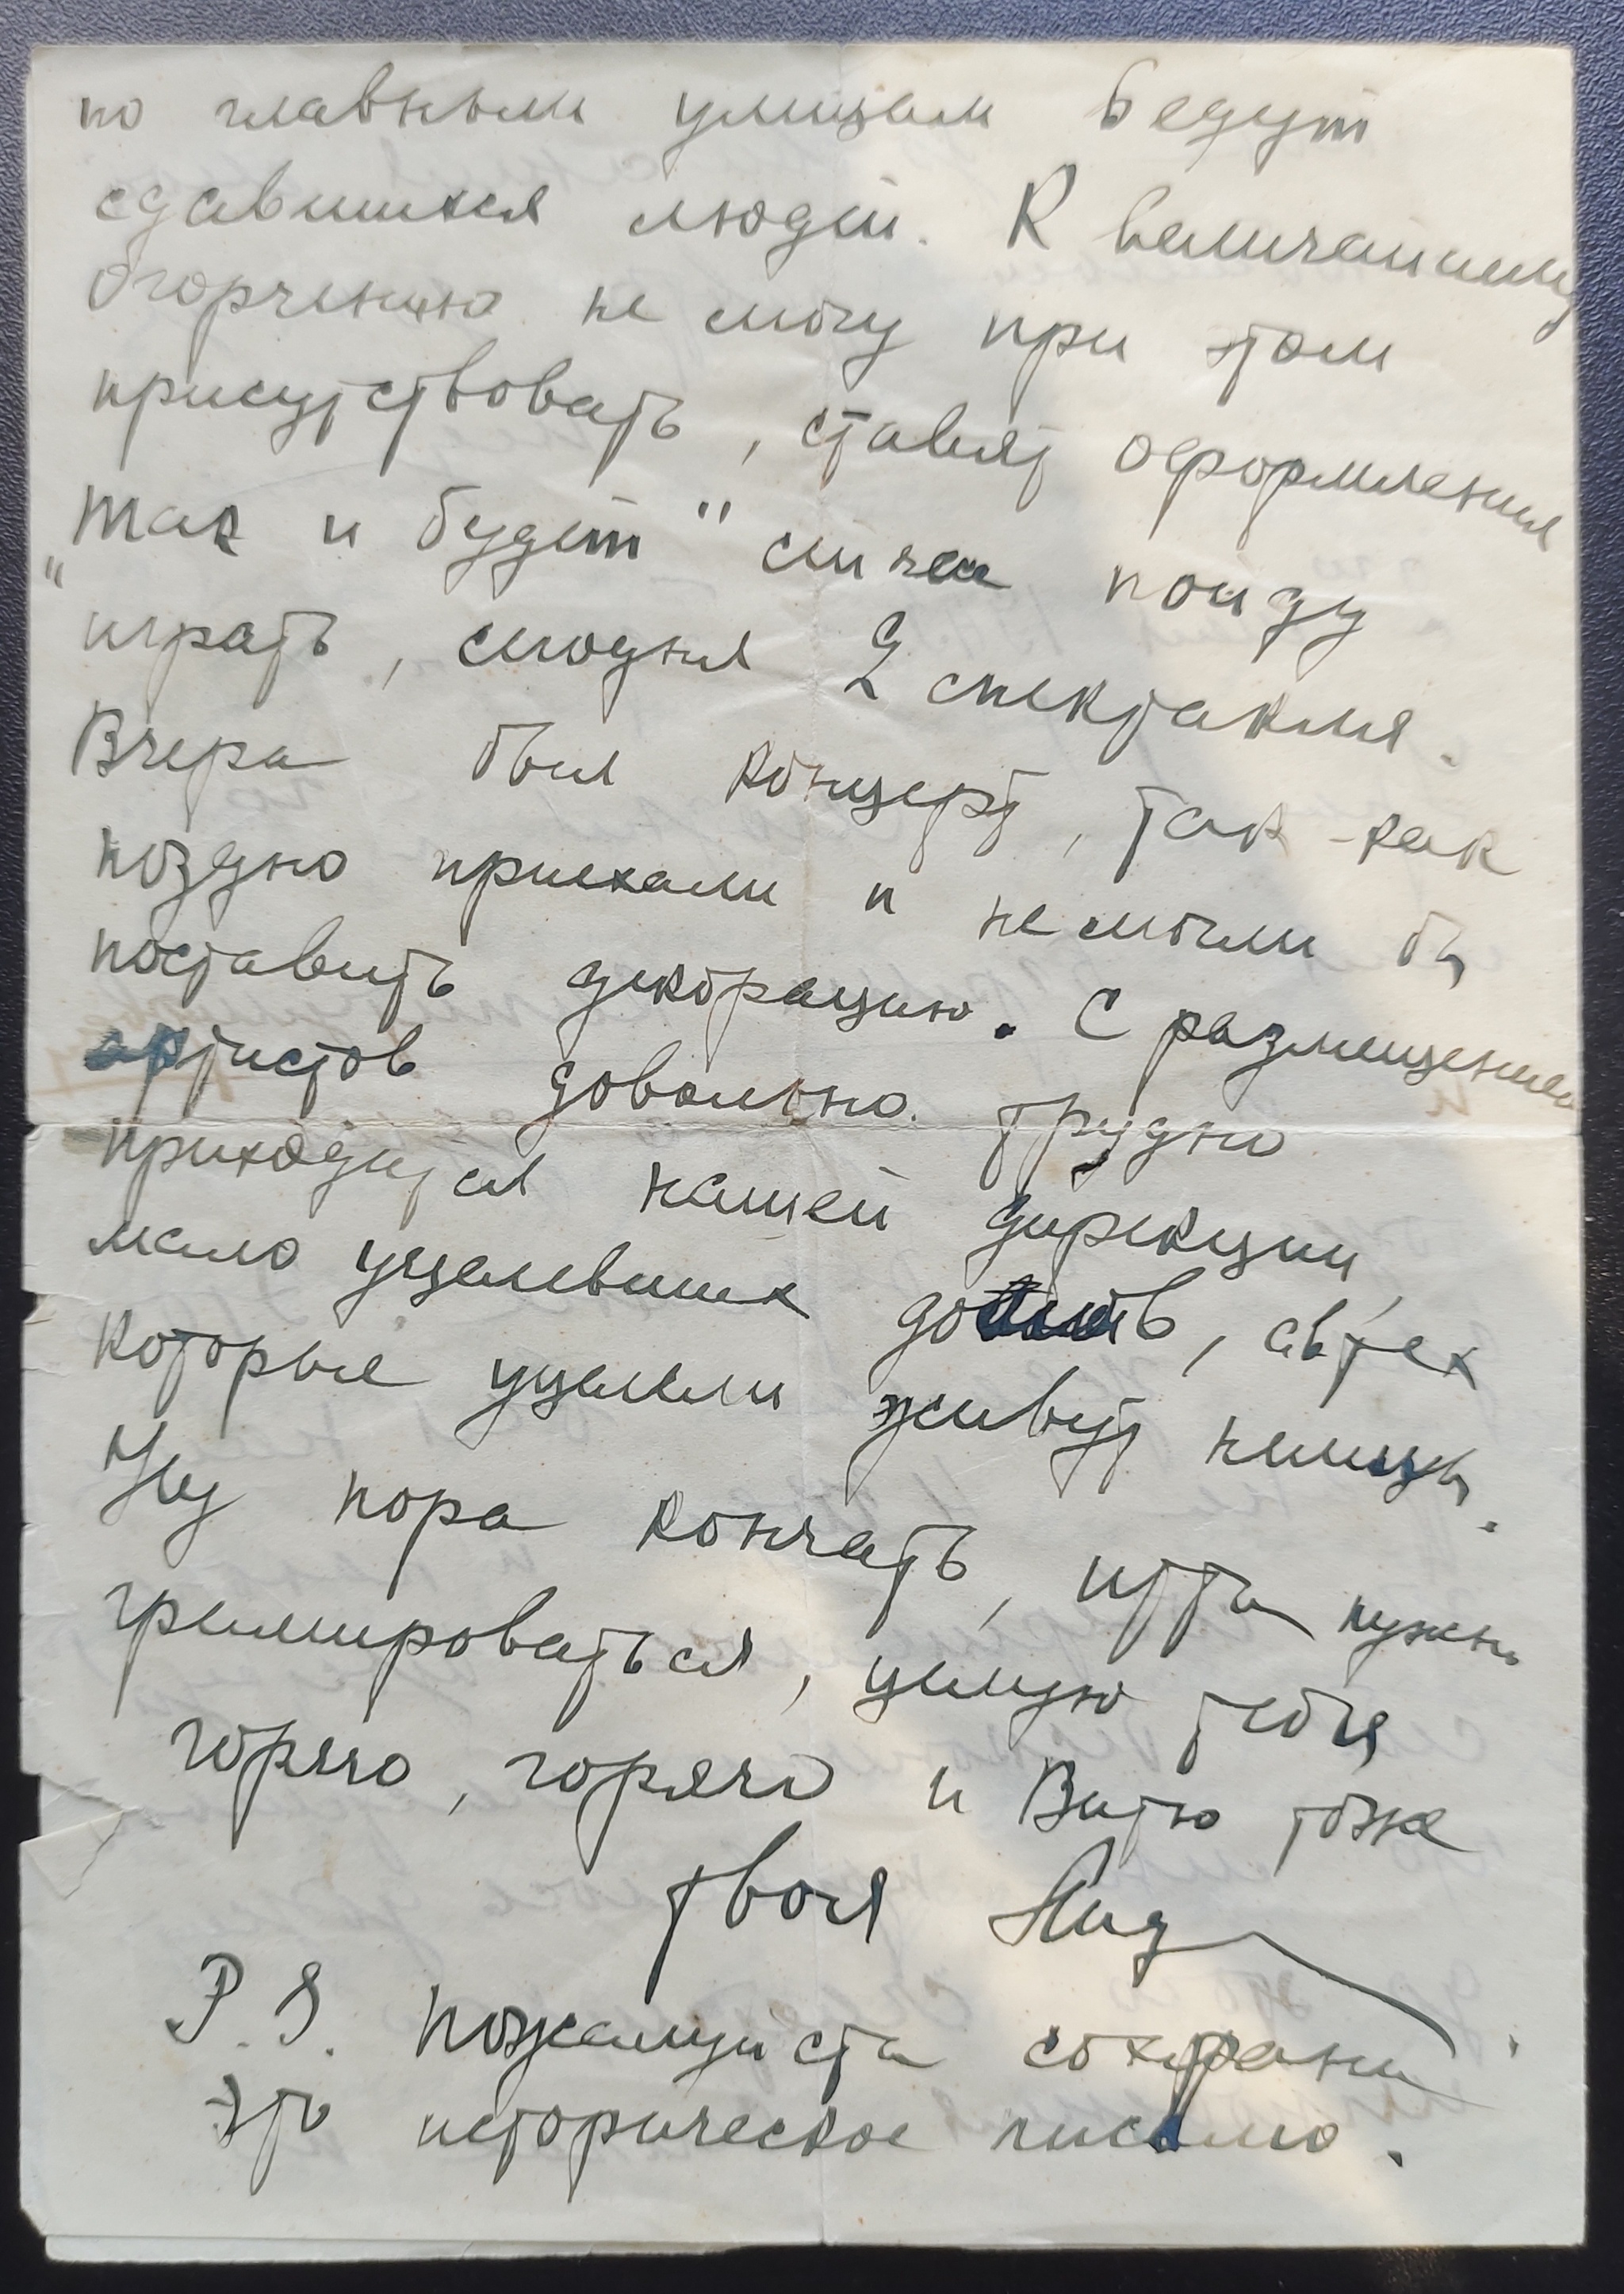 по главным улицам ведут
сдавшихся людей. К величайшему
огорчению не могу при этом
присутствовать, ставят оформления
"Так и будет" сейчас пойду
играть, сегодня 2 спектакля.
Вчера был концерт, так-как
поздно приехали и не могли бы
поставить декорацию. С размещением
артистов довольно трудно
приходится нашей дирекции,
мало уцелевших домов, а в тех
которые уцелели живут немцы.
Ну пора кончать, итти нужно
гримироваться, целую тебя
горячо, горячо и Витю тоже
твоя
P.S. Пожалуйста сохрани
это историческое письмо.